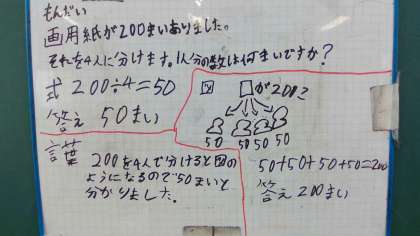 もんだい
画用紙が200まいありました。
それを4人に分けます。1人分の数は何まいですか?
式 200÷4=50
答え 50まい
図 □が200こ
50 50 50 50
言葉
200を4人で分けると図の
ようになるので50まいと
分かりました。
50+50+50+50=200
答え 200まい